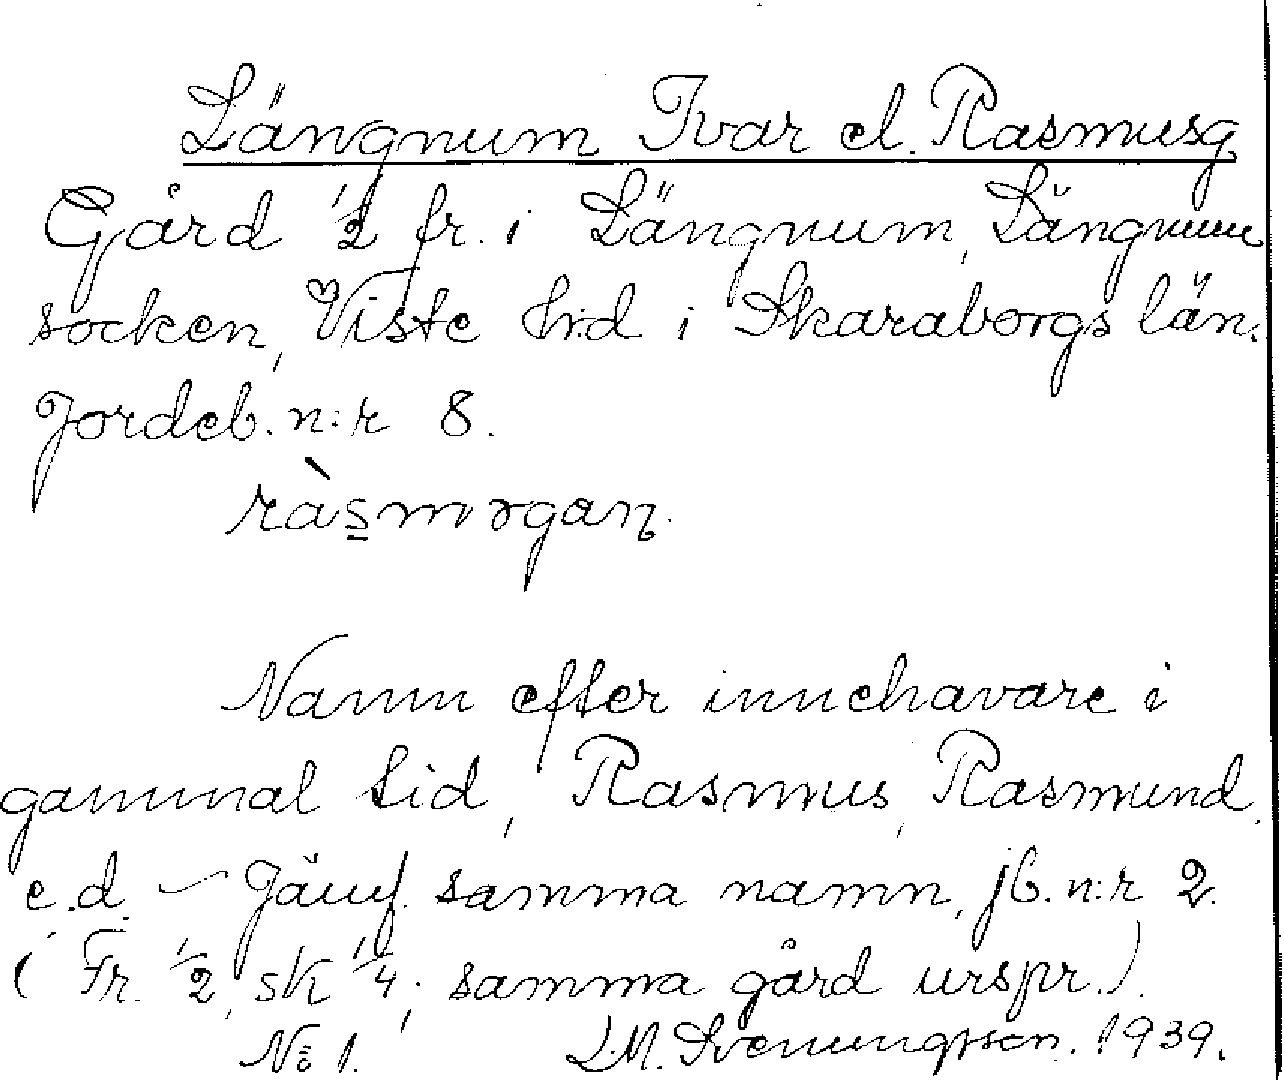 Längnum Ivar el. Rasmusg.
Gård 1/2 fr. i Längnum, Längnum
socken, Viste hrd i Skaraborgs län.
Jordeb. n:r 8.
ràs̱mɤgaɳ.
Namn efter innehavare i
gammal tid, Rasmus, Rasmund
e.d. – Jämf. samma namn, jb. n:r 2.
(Fr. 1/2, sk 1/4; samma gård urspr.).
No 1. L.M. Svenungsson. 1939.